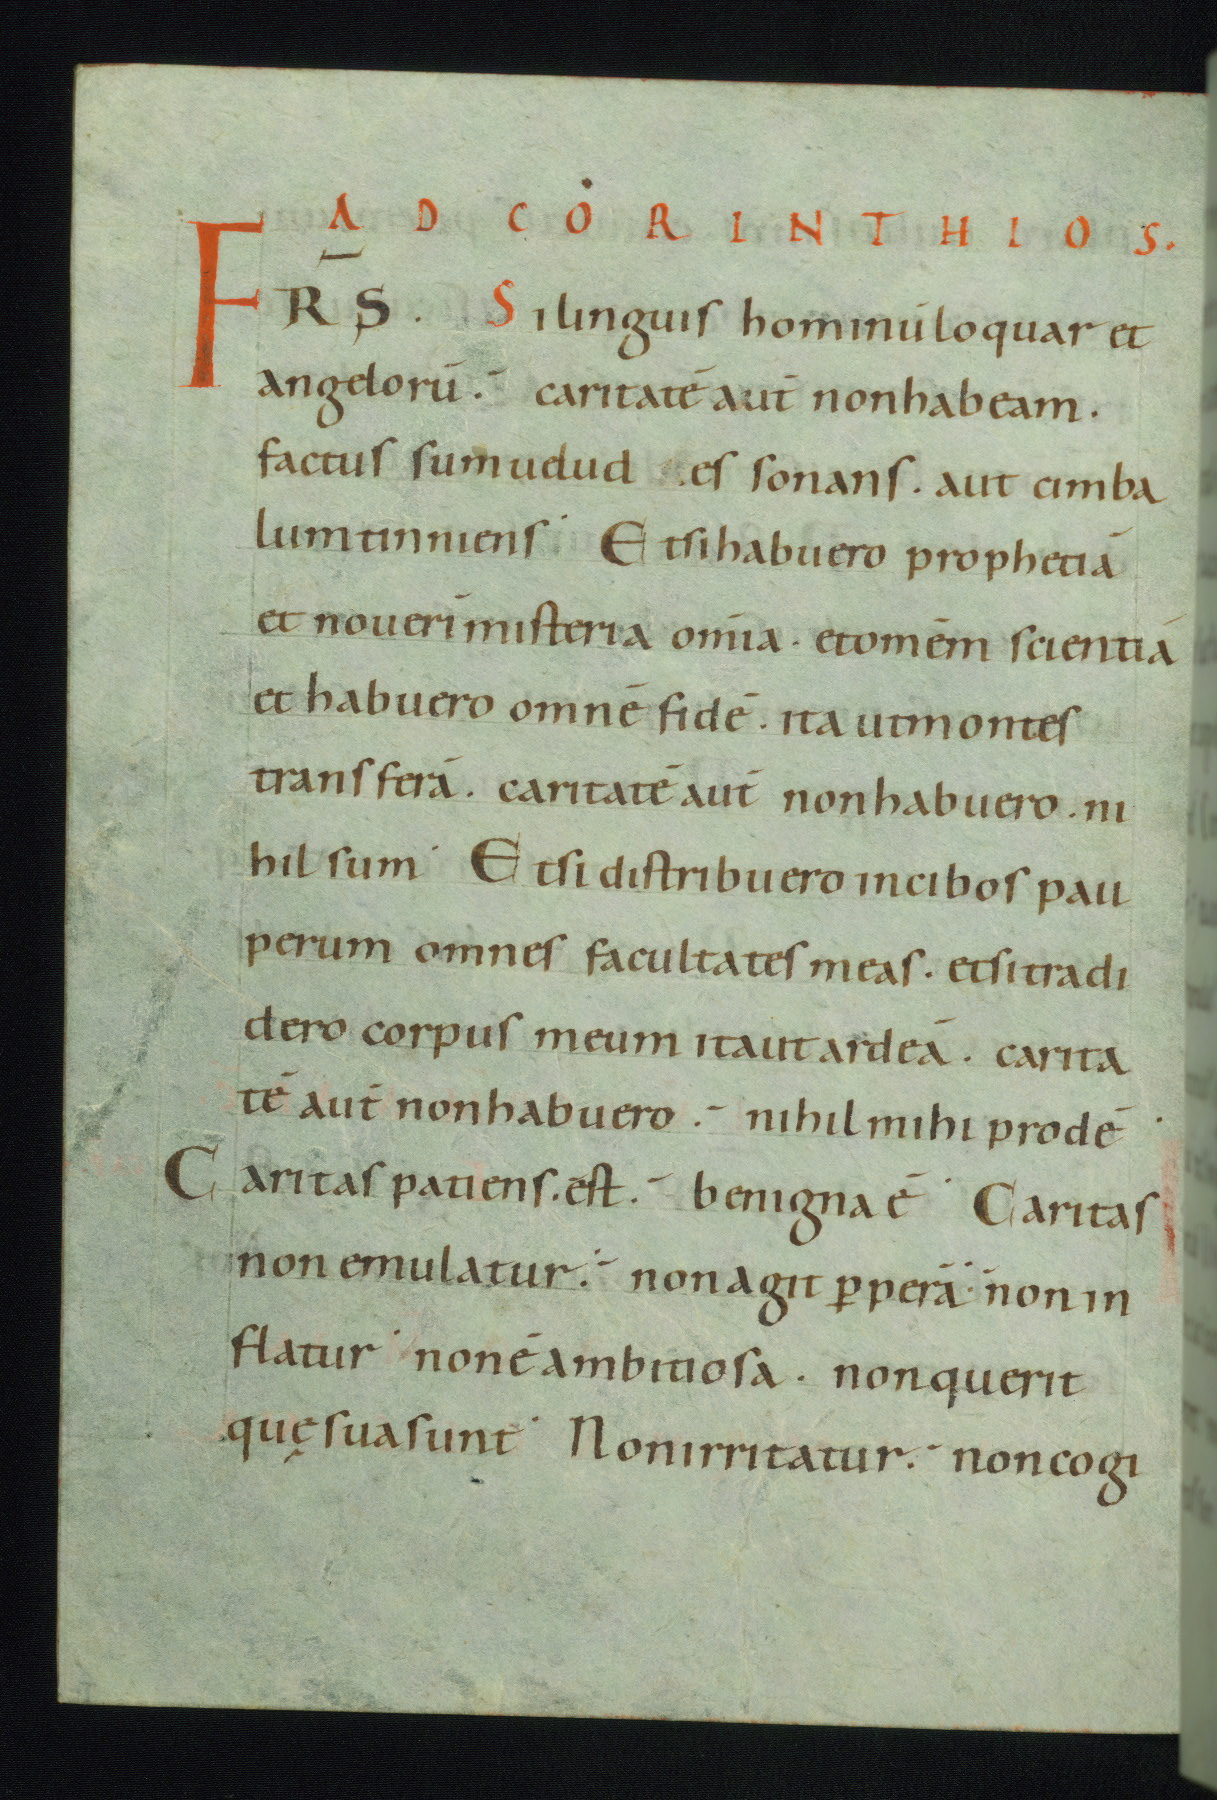 AD CORINTHIOS.
FRS̄. Si linguis hominū loquar et
angelorū. caritatē aut̄ non habeam.
factus sum uelud es sonans. aut cimba
lum tinniens Et si habuero prophetiā
et nouerī misteria om̄ia. et omēm scientiā
et habuero omnē fidē. ita ut montes
transferā. caritatē aut̄ non habuero. ni
hil sum Et si distribuero in cibos pau
perum omnes facultates meas. et si tradi
dero corpus meum ita ut ardeā. carita
tē aut̄ non habuero. nihil mihi prodē
Caritas patiens. est. benigna ē Caritas
non emulatur. non agit ꝑperā non in
flatur non ē ambitiosa. non querit
quę sua sunt Non irritatur. non cogi